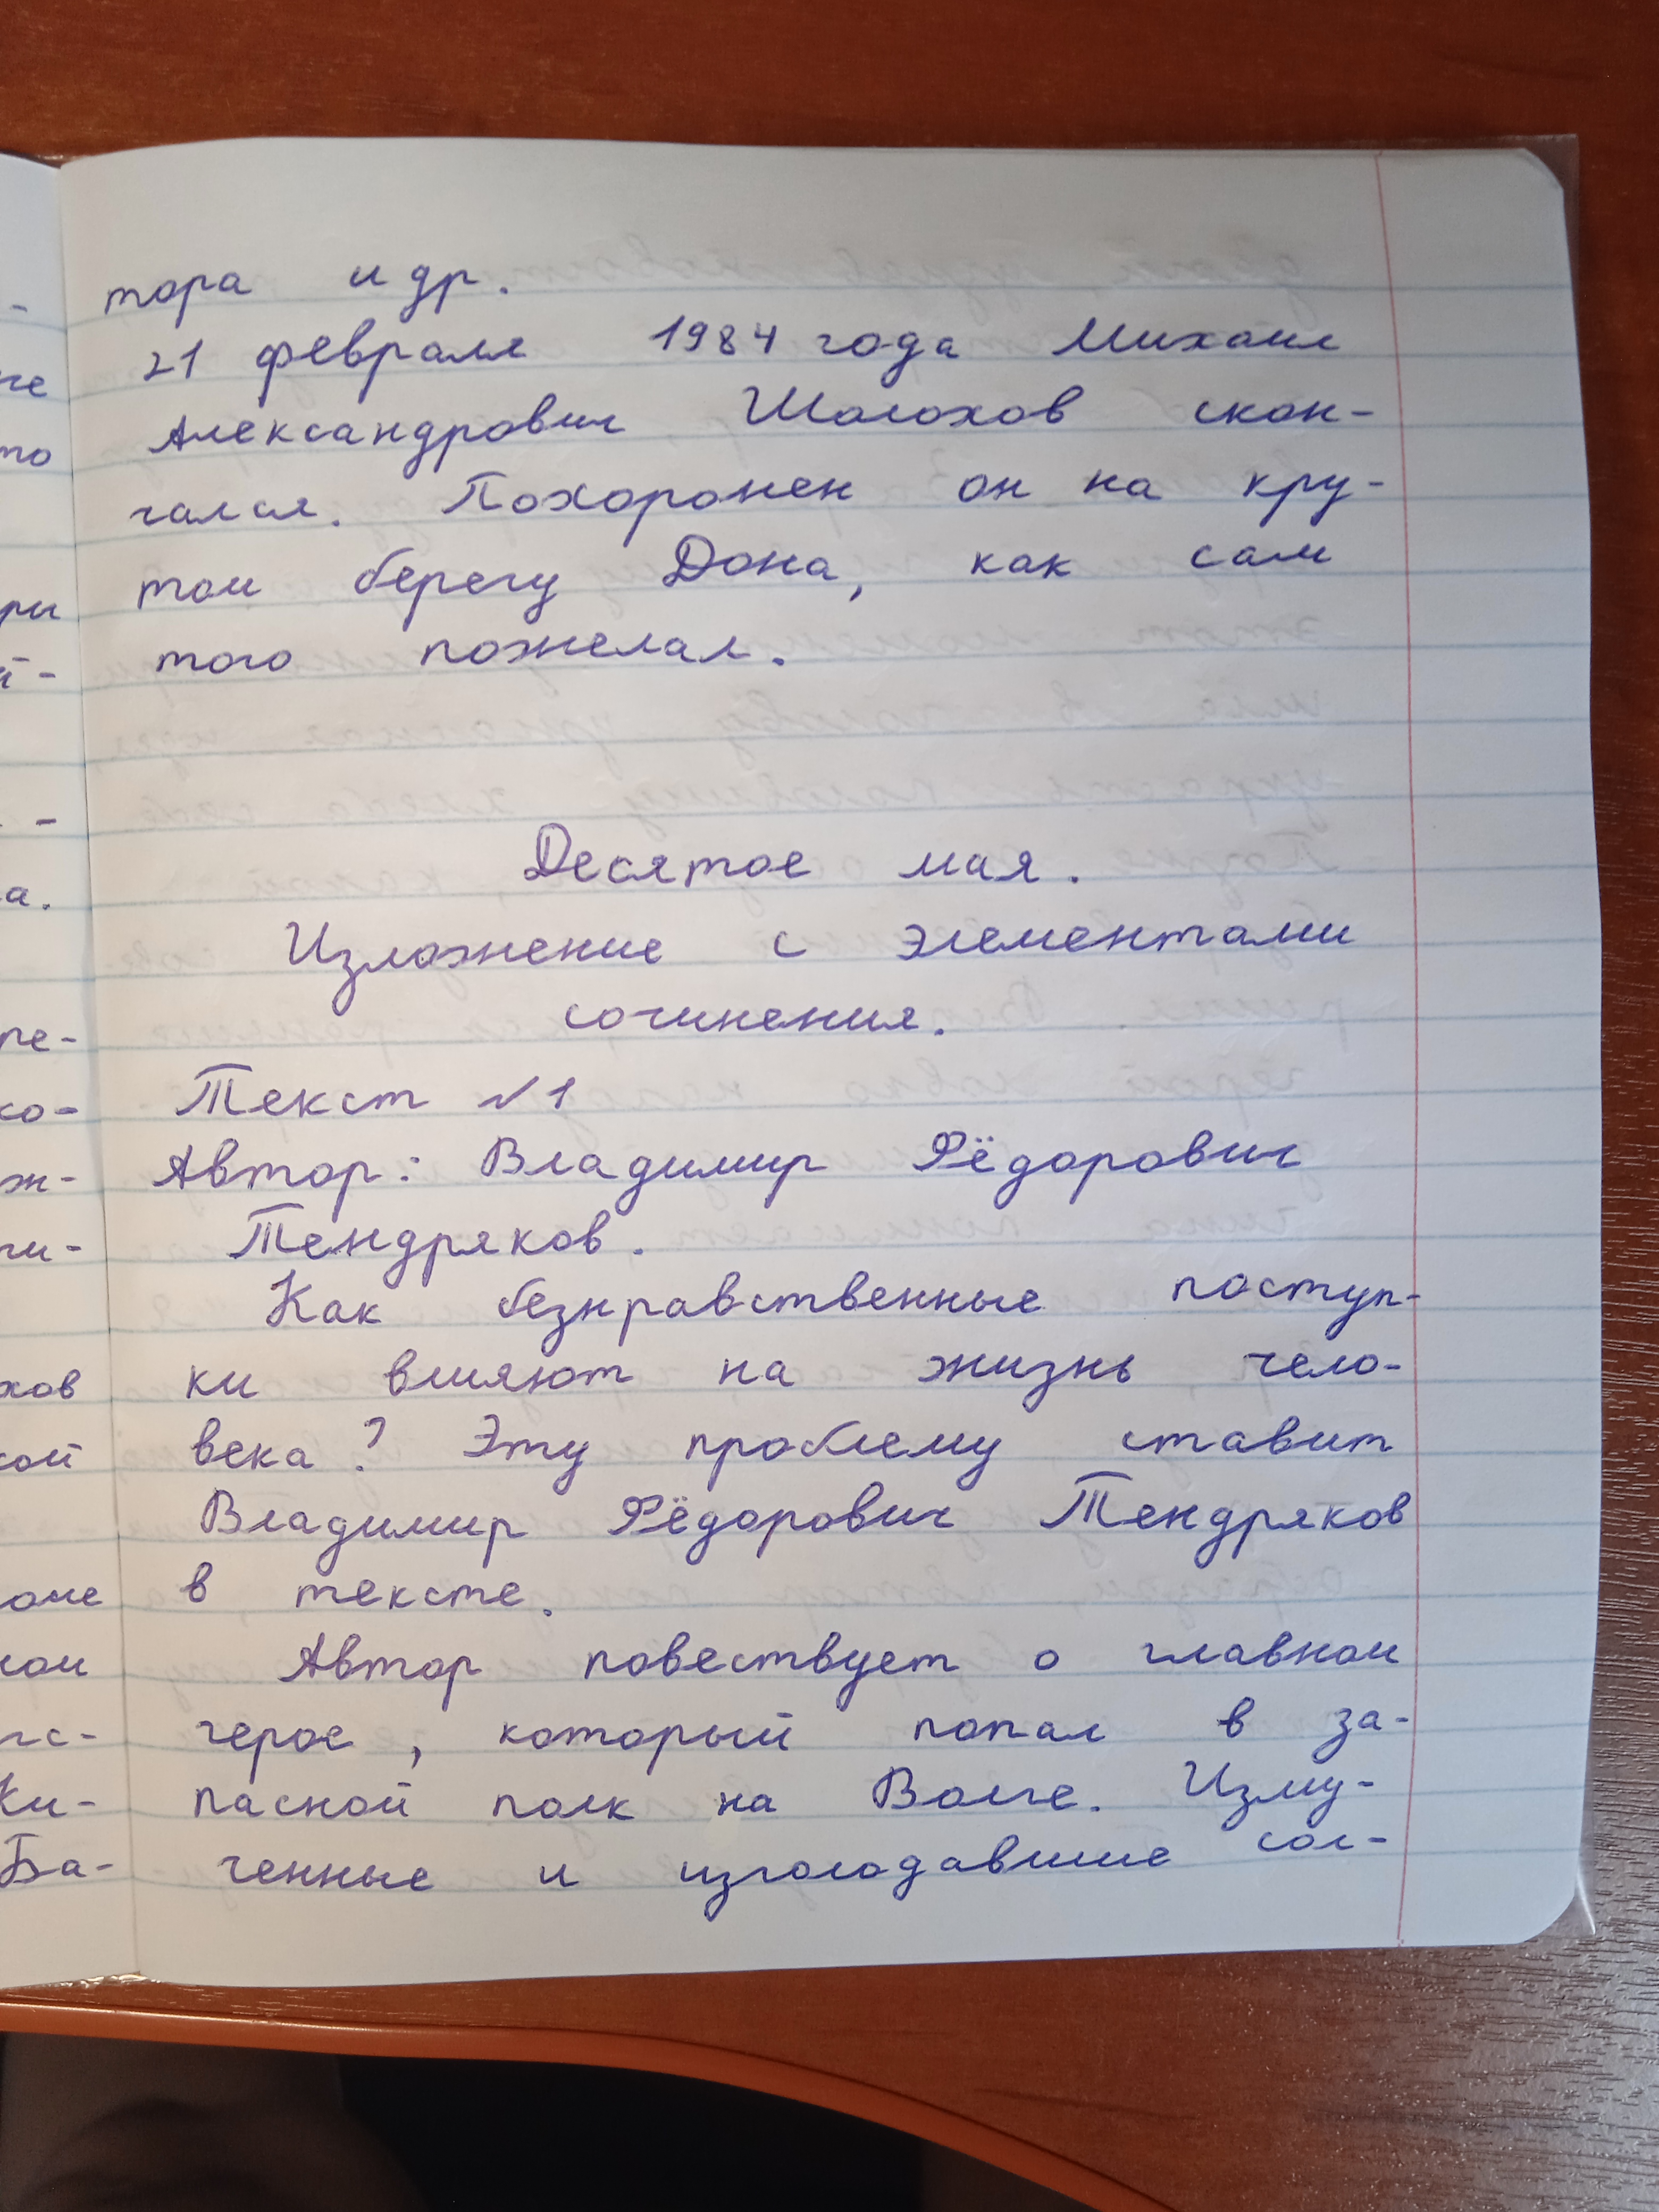 тора и др.
21 февраля 1984 года Михаил
Александрович Шолохов скон-
чался. Похоронен он на кру-
том берегу Дона, как сам
того пожелал.
Десятое мая.
Изложение с элементами
сочинения.
Текст №1
Автор: Владимир Фёдорович
Тендряков.
Как безнравственные поступ-
ки влияют на жизнь чело-
века? Эту проблему ставит
Владимир Фёдорович Тендряков
в тексте.
Автор повествует о главном
герое, который попал в за-
пасной полк на Волге. Изму-
ченные и изголодавшие сол-